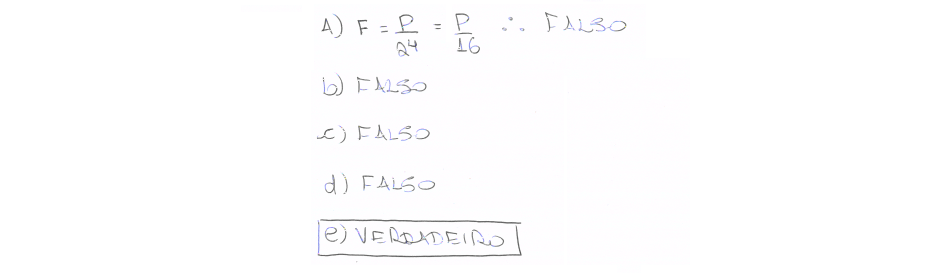 A) F = P/2⁴ = P/16 ∴ FALSO
b) FALSO
c) FALSO
d) FALSO
e) VERDADEIRO